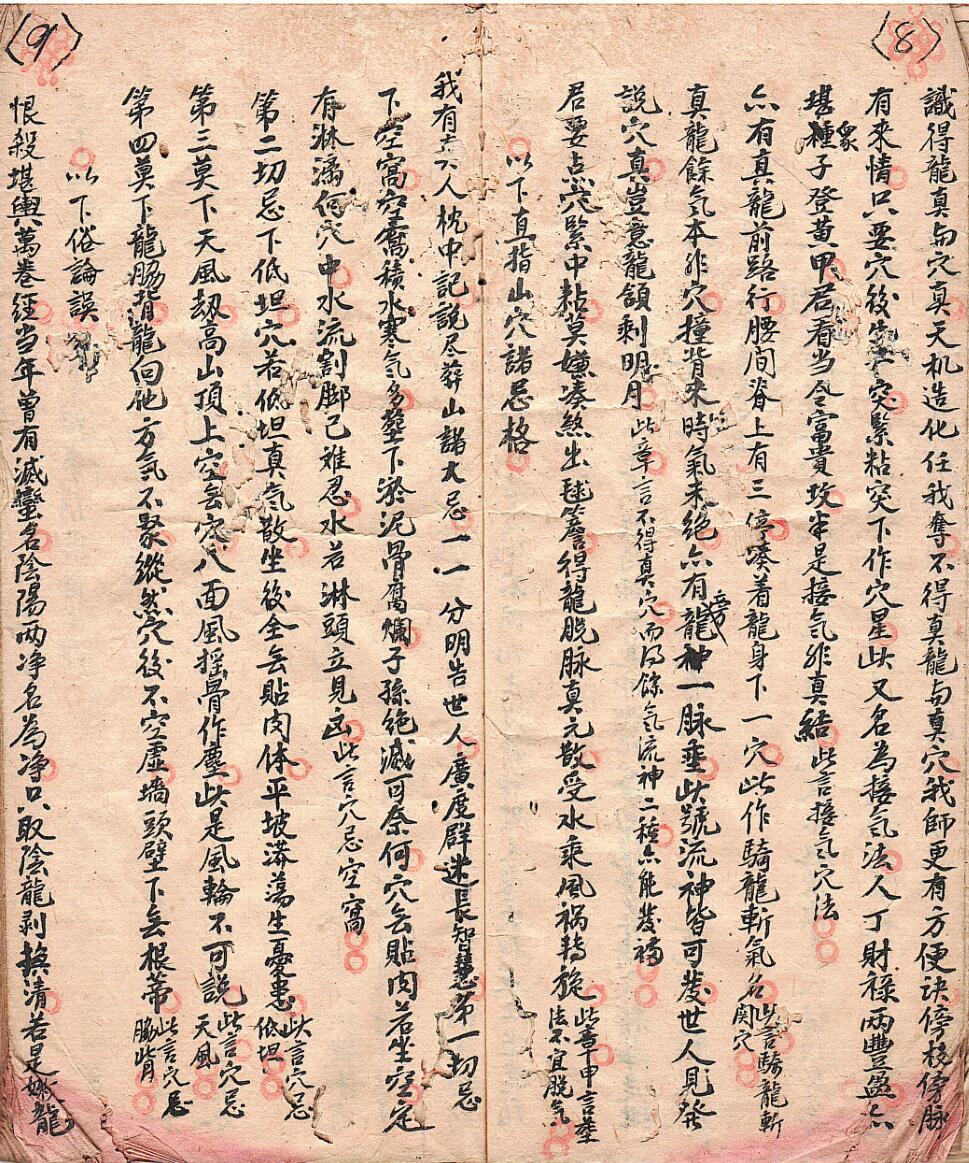 〈8〉
識得龍真与穴真天机造化任我奪不得真龍与真穴我師更有方便诀傍枝傍脉
有來情只要穴後生突緊粘突下作穴星此又名為接氣法人丁財祿两豐盈亦
堪種子登黄甲君看当今富貴坟半是接氣非真結此言接氣穴法
亦有真龍前路行腰间脊上有三停凑着龍身下一穴此作騎龍斬氣名此言騎龍斬関穴
真龍餘氣本非穴撞背來時氣未絕亦有龍神一脉垂此號流神皆可發世人見發
說穴真豈意龍頷剩明月此章言不得真穴而得餘气流神二種亦能發福
君要点穴緊中粘莫嫌凑煞出毬簷得龍脱脉真元散受水乘風禍轉旋此章申言塟法不宜脱气
以下直指山穴諸忌格
〈9〉
我有古人枕中記說尽葬山諸大忌一一分明告世人廣度群迷長智慧第一切忌
下空窩空窩積水寒气多塟下淤泥骨腐爛子孫絕滅可奈何穴無貼肉若坐空定
有淋漓向穴中水流割脚已难忍水若淋頭立見凶此言穴忌空窩
第二切忌下低坦穴若低坦真气散坐後全無貼肉体平坡漭蕩生憂患此言穴忌低坦
第三莫下天風刼高山頂上空無穴八面風摇骨作塵此是風輪不可說此言穴忌天風
第四莫下龍脇背龍向他方气不聚縱然穴後不空虚墻頭壁下無根蒂此言穴忌脇背
以下俗論誤
恨殺堪輿萬卷經当年曾有滅蠻名陰陽两净名為净只取陰龍剥换清若是嫩龍